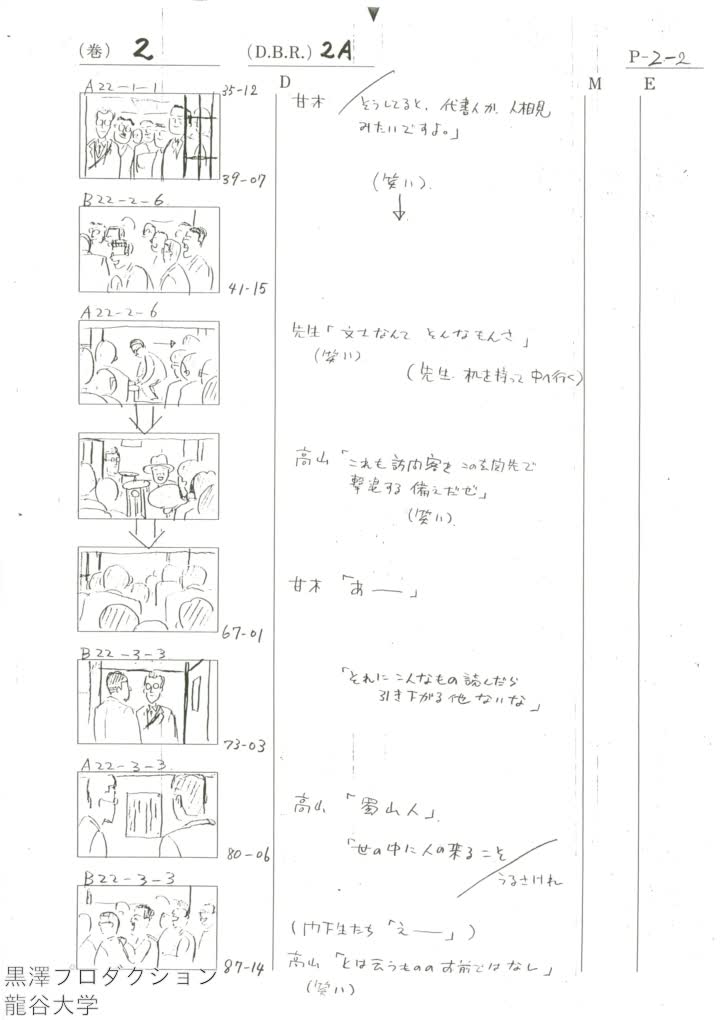 (巻) 2 (D.B.R.) 2A P-2-2
D M E
A22-1-1 35-12
甘木 どうしてると、代書人か、人相見
みたいですよ。」
39-07
(笑い)
B22-2-6
41-15
A22-2-6
先生「文士なんて そんなもんさ」
(笑い)
(先生、机を持って中へ行く)
高山「これも訪問客を この玄関先で
撃退する備えだぜ」
(笑い)
甘木「あ——」
67-01
B22-3-3
「それに こんなもの読んだら
引き下がる他ないな」
73-03
A22-3-3
高山「蜀山人」
「世の中に人の来ること
うるさけれ
80-06
B22-3-3
(門下生たち「え——」)
高山「とは云うものの お前ではなし」
87-14
(笑い)
黒澤プロダクション
龍谷大学